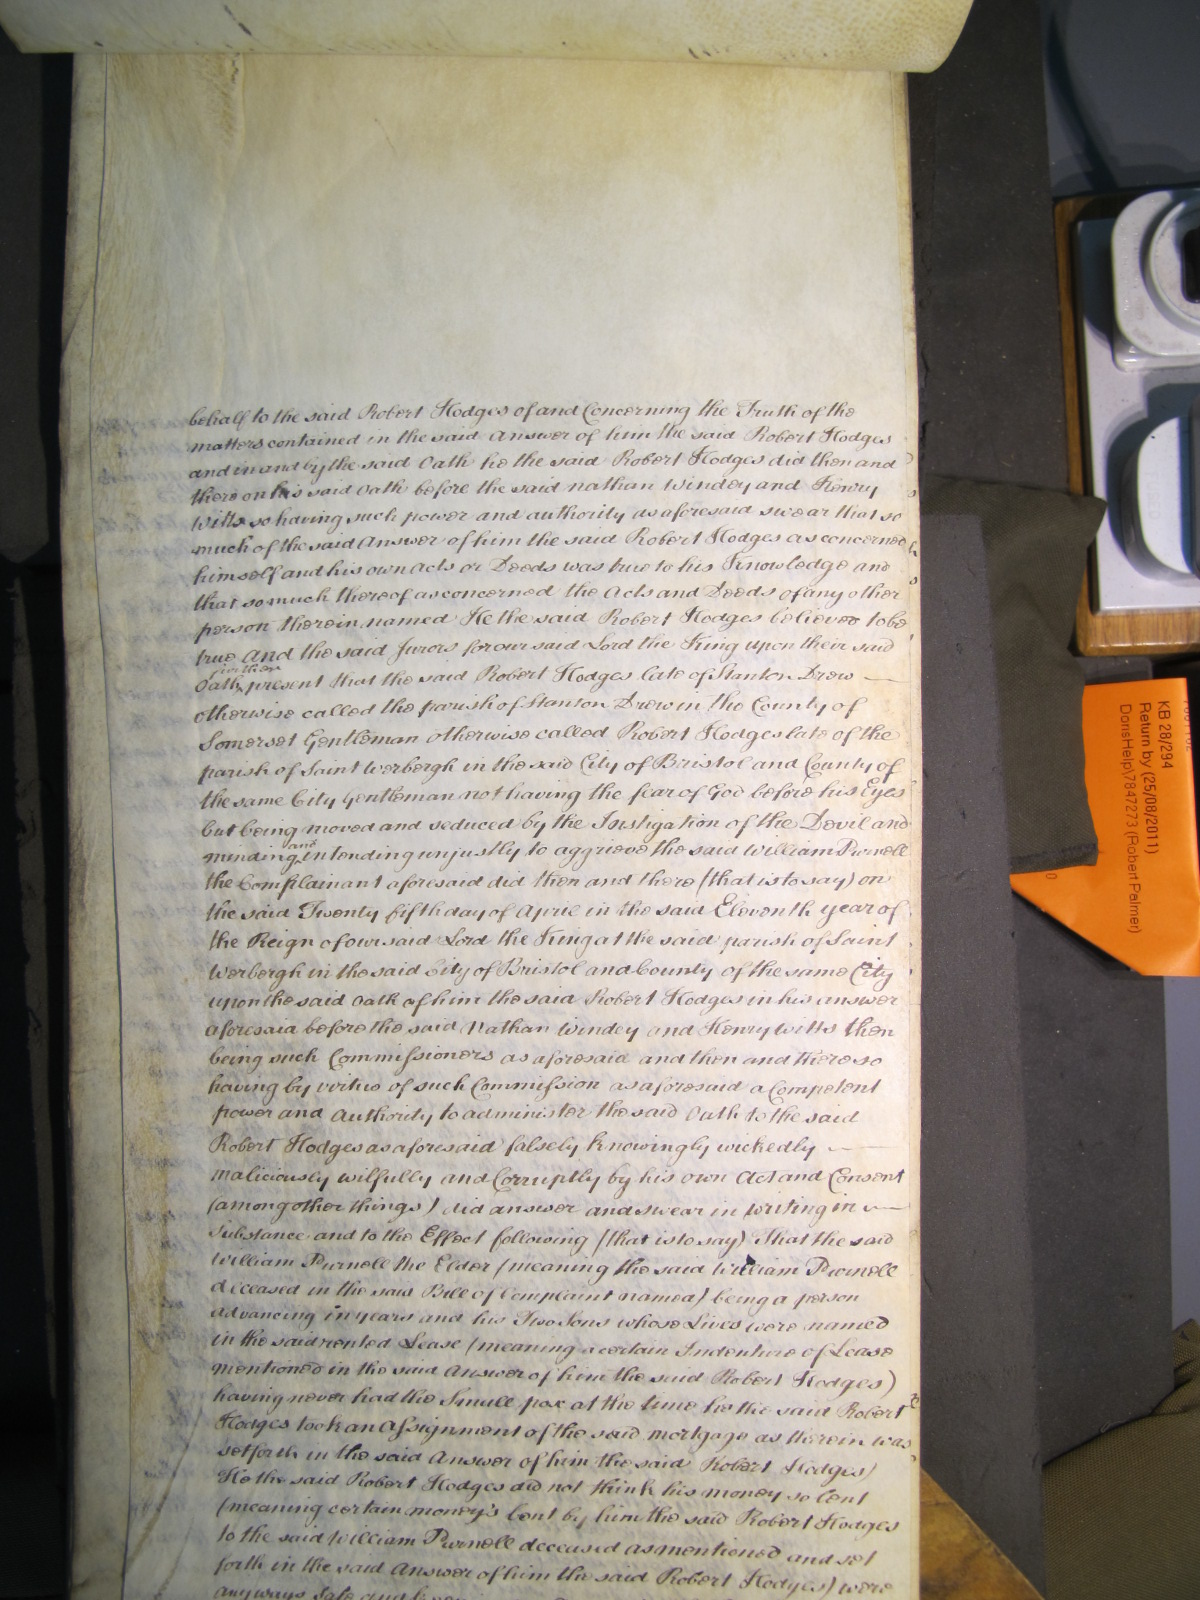 behalf to the said Robert Hodges of and Concerning the Truth of the
matters contained in the said Answer of him the said Robert Hodges
and in and by the said Oath he the said Robert Hodges did then and
there on his said Oath before the said Nathan Windey and Henry
Witts so having such power and authority as aforesaid swear that so
much of the said Answer of him the said Robert Hodges as concerned
himself and his own Acts or Deeds was true to his Knowledge and
that so much thereof as concerned the Acts and Deeds of any other
person therein named He the said Robert Hodges believed to be
true And the said Jurors for our said Lord the King upon their said
further
Oath present that the said Robert Hodges late of Stanton Drew
otherwise called the parish of Stanton Drew in the County of
Somerset Gentleman otherwise called Robert Hodges late of the
parish of Saint Werbergh in the said City of Bristol and County of
the same City Gentleman not having the fear of God before his Eyes
but being moved and seduced by the Instigation of the Devil and
and
minding intending unjustly to aggrieve the said William Purnell
the Complainant aforesaid did then and there (that is to say) on
the said Twenty fifth day of April in the said Eleventh year of
the Reign of our said Lord the King at the said parish of Saint
Werbergh in the said City of Bristol and County of the same City
upon the said Oath of him the said Robert Hodges in his answer
aforesaid before the said Nathan Windey and Henry Witts then
being such Commissioners as aforesaid and then and there so
having by virtue of such Commission as aforesaid a Competent
power and Authority to administer the said Oath to the said
Robert Hodges as aforesaid falsely knowingly wickedly
maliciously wilfully and Corruptly by his own Act and Consent
(among other things) did answer and swear in writing in
substance and to the Effect following (that is to say) That the said
William Purnell the Elder (meaning the said William Purnell
deceased in the said Bill of Complaint named) being a person
advancing in years and his Two Sons whose Lives were named
in the said rented Lease (meaning a certain Indenture of Lease
mentioned in the said Answer of him the said Robert Hodges)
having never had the Small pox at the time he the said Robert
Hodges took an Assignment of the said mortgage as therein was
setforth in the said Answer of him the said Robert Hodges)
He the said Robert Hodges did not think his money so lent
(meaning certain money's lent by him the said Robert Hodges
to the said William Purnell deceased as mentioned and set
forth in the said Answer of him the said Robert Hodges) were
anyways safe and
KB 28/294
Return by (25/08/2011)
DorisHelp\7847273 (Robert Palmer)